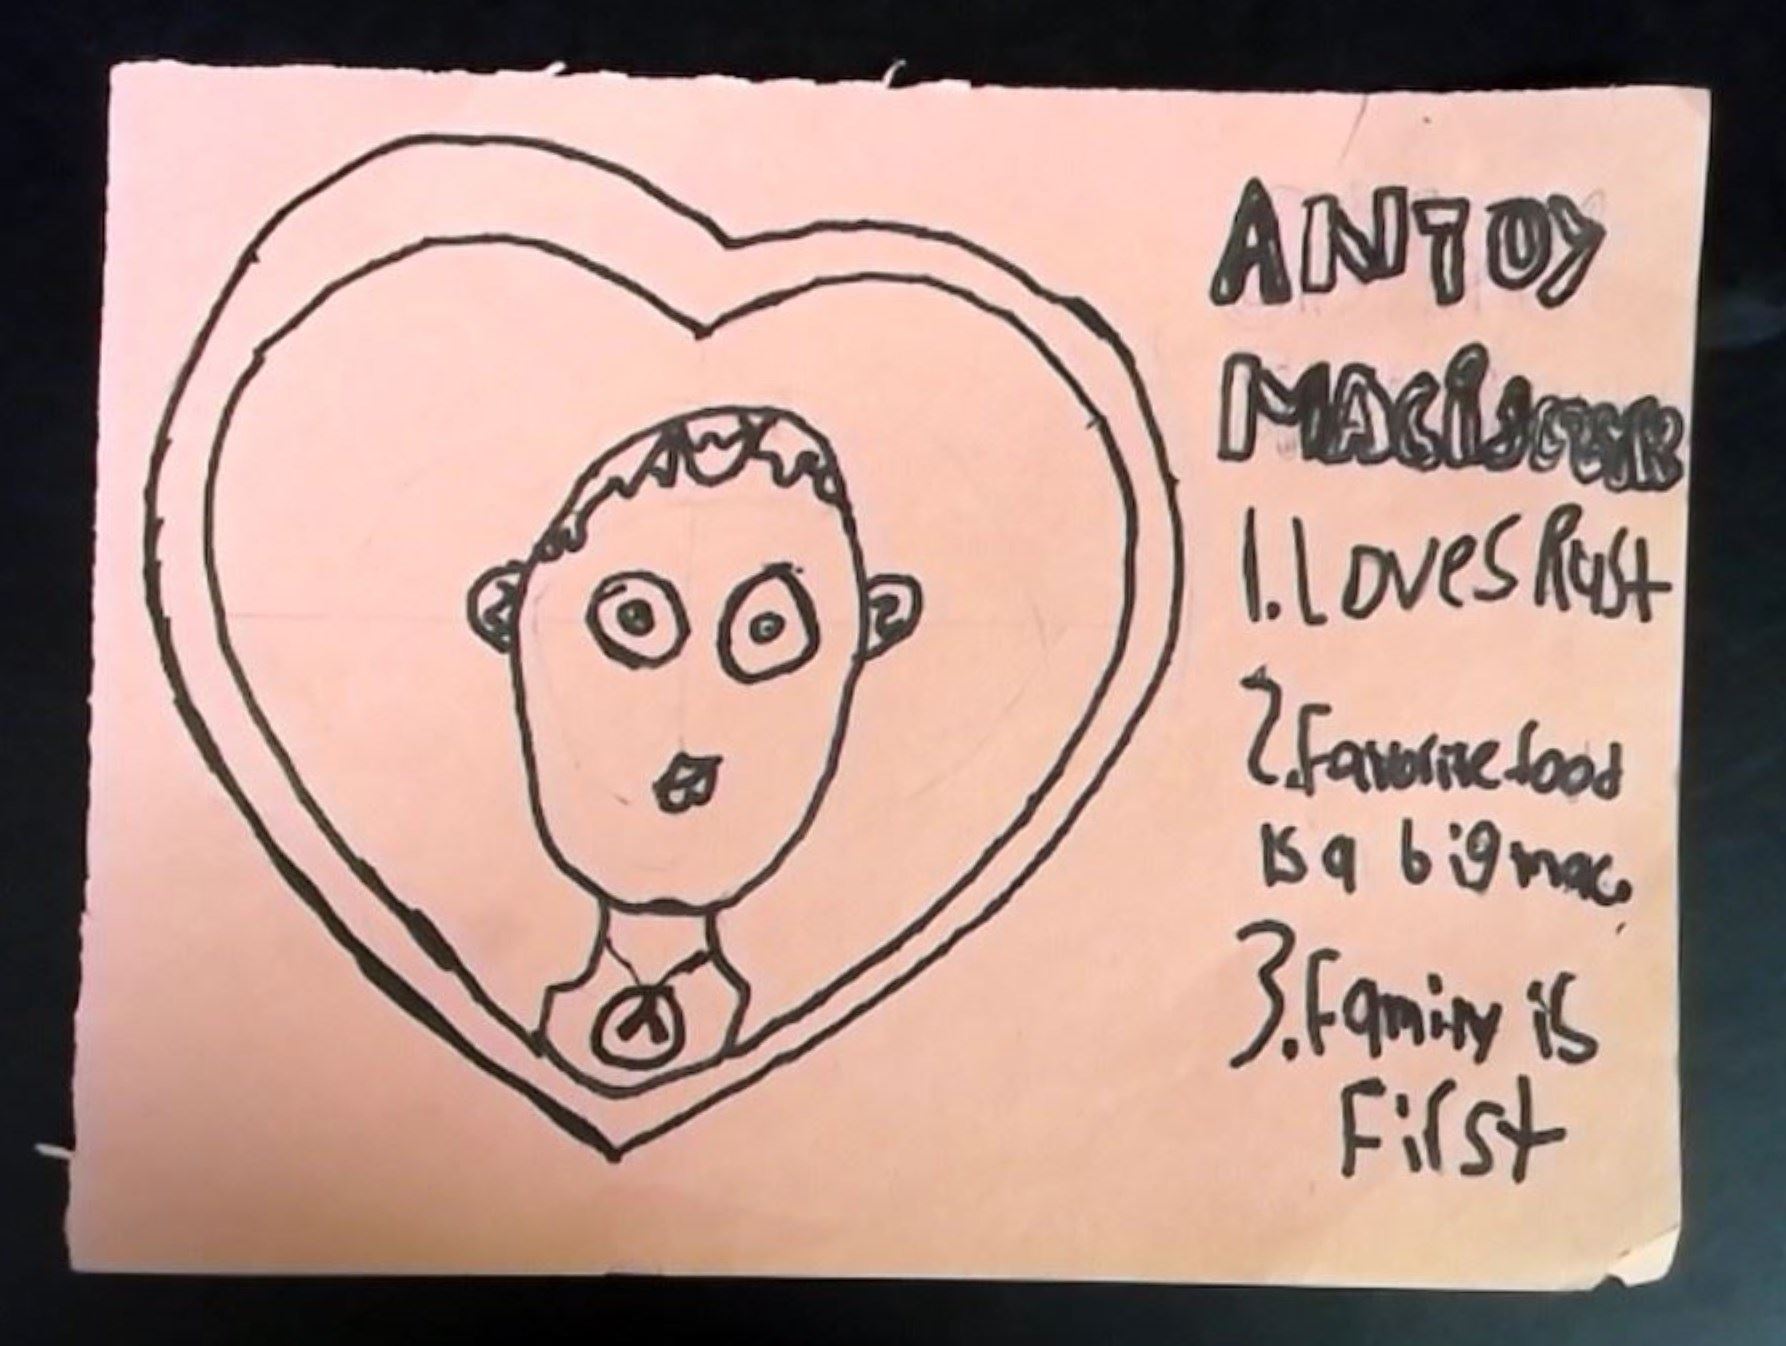 ANTOY
1. Loves Rust
2. favorite food
is a big mac.
3. Family is
First